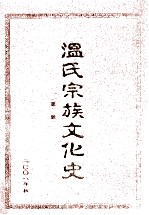 溫氏宗族文化史
二〇〇八年秋